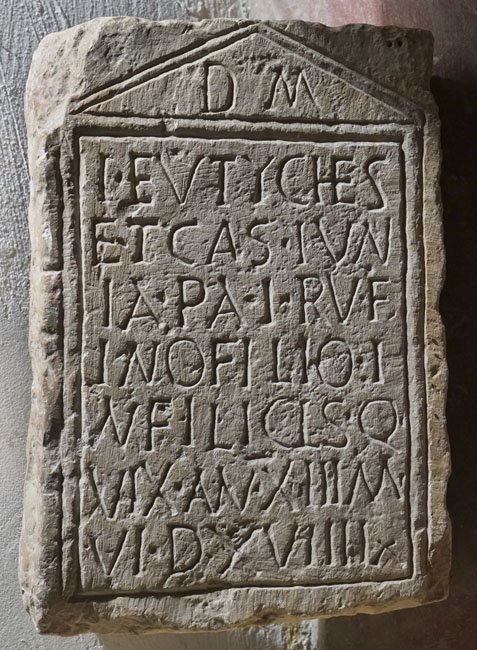 D M
I·EVTYCHES
ET CAS·IVN
IA·PA·I·RVF
I·NO FILIO·I
NFILICIS Q
VIX·AN·XIII M
VI·D·XVIIII